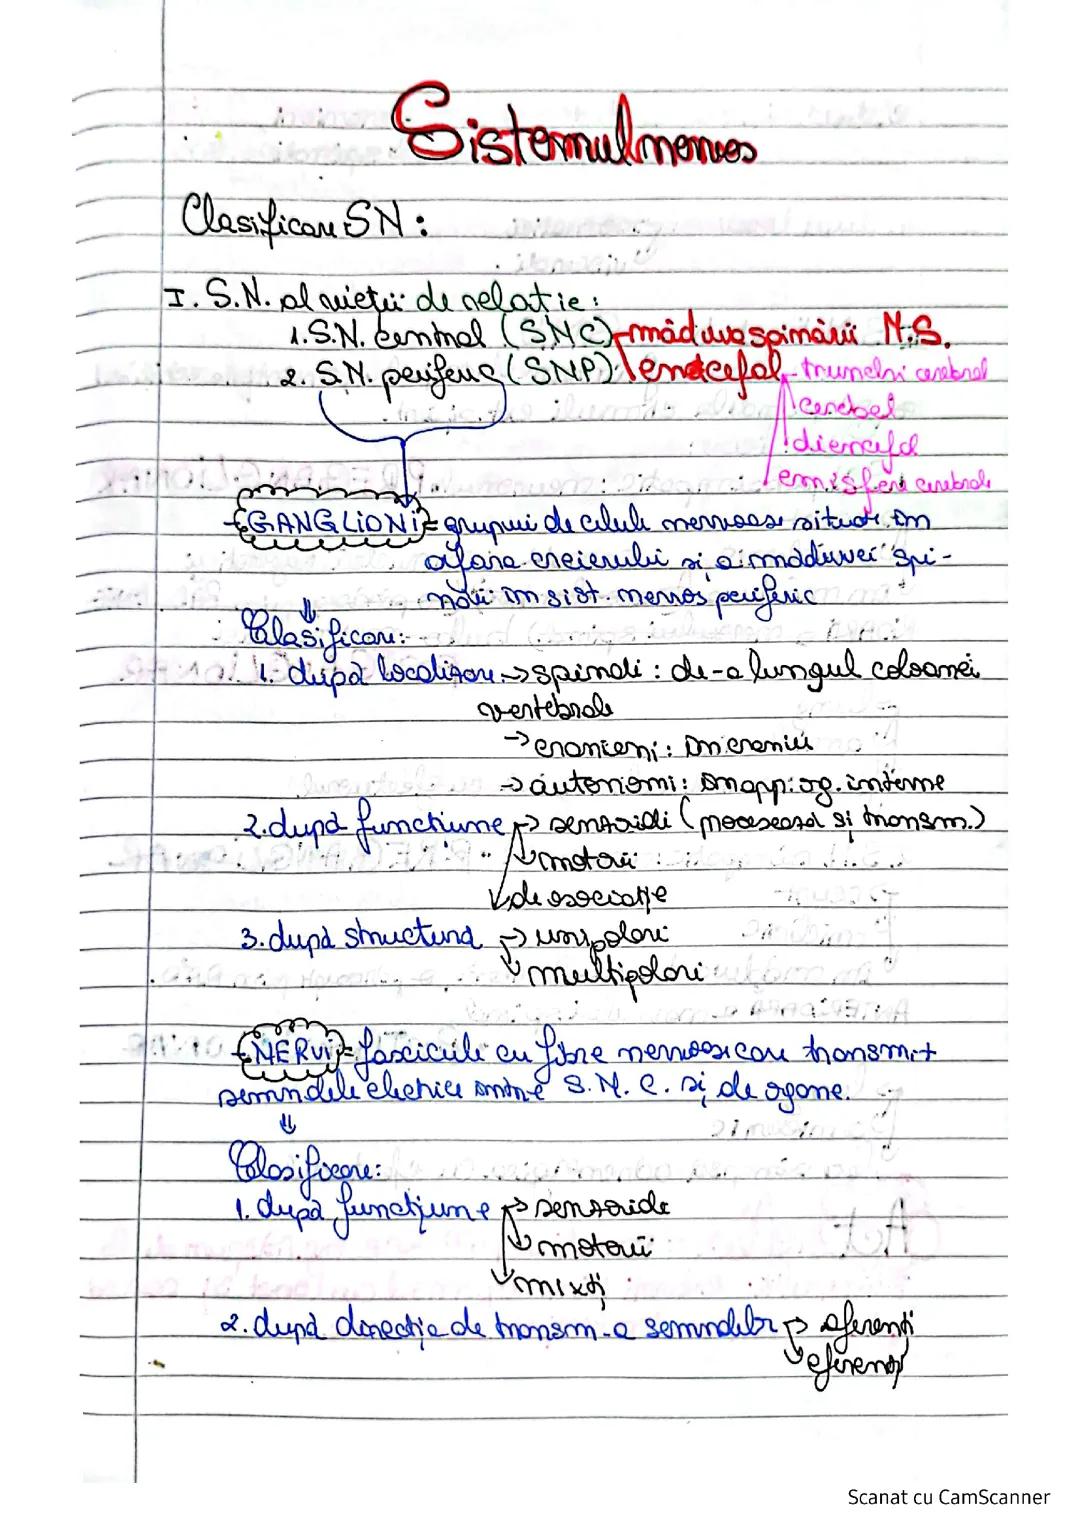 Sistemul nervos
Clasificare SN:
I. S.N. al vieții de relație:
1. S.N. central (SNC) măduva spinării M.S.
2. S.N. periferic (SNP): encefal trunchi cerebral
cerebel
diencefal
emisfere cerebrale
-GANGLIONI= grupuri de celule nervoase situate în
afara creierului și a măduvei spi-
nării în sist. nervos periferic
⇓
Clasificare:
1. după localizare → spinali: de-a lungul coloanei
vertebrale
→ cranieni: în craniu
→ autonomi: în app: og. interne
2. după funcțiune → senzoriali (procesează și transm.)
→ motorii
→ de asociație
3. după structură → unipolari
→ multipolari
-NERVI= fascicule cu fibre nervoase care transmit
semnalele electrice între S.N.C. și de ogane.
⇓
Clasificare:
1. după funcțiune → senzoriale
→ motorii
→ mixți
2. după direcția de transm. a semnalelor → aferenți
→ eferenți
Scanat cu CamScanner